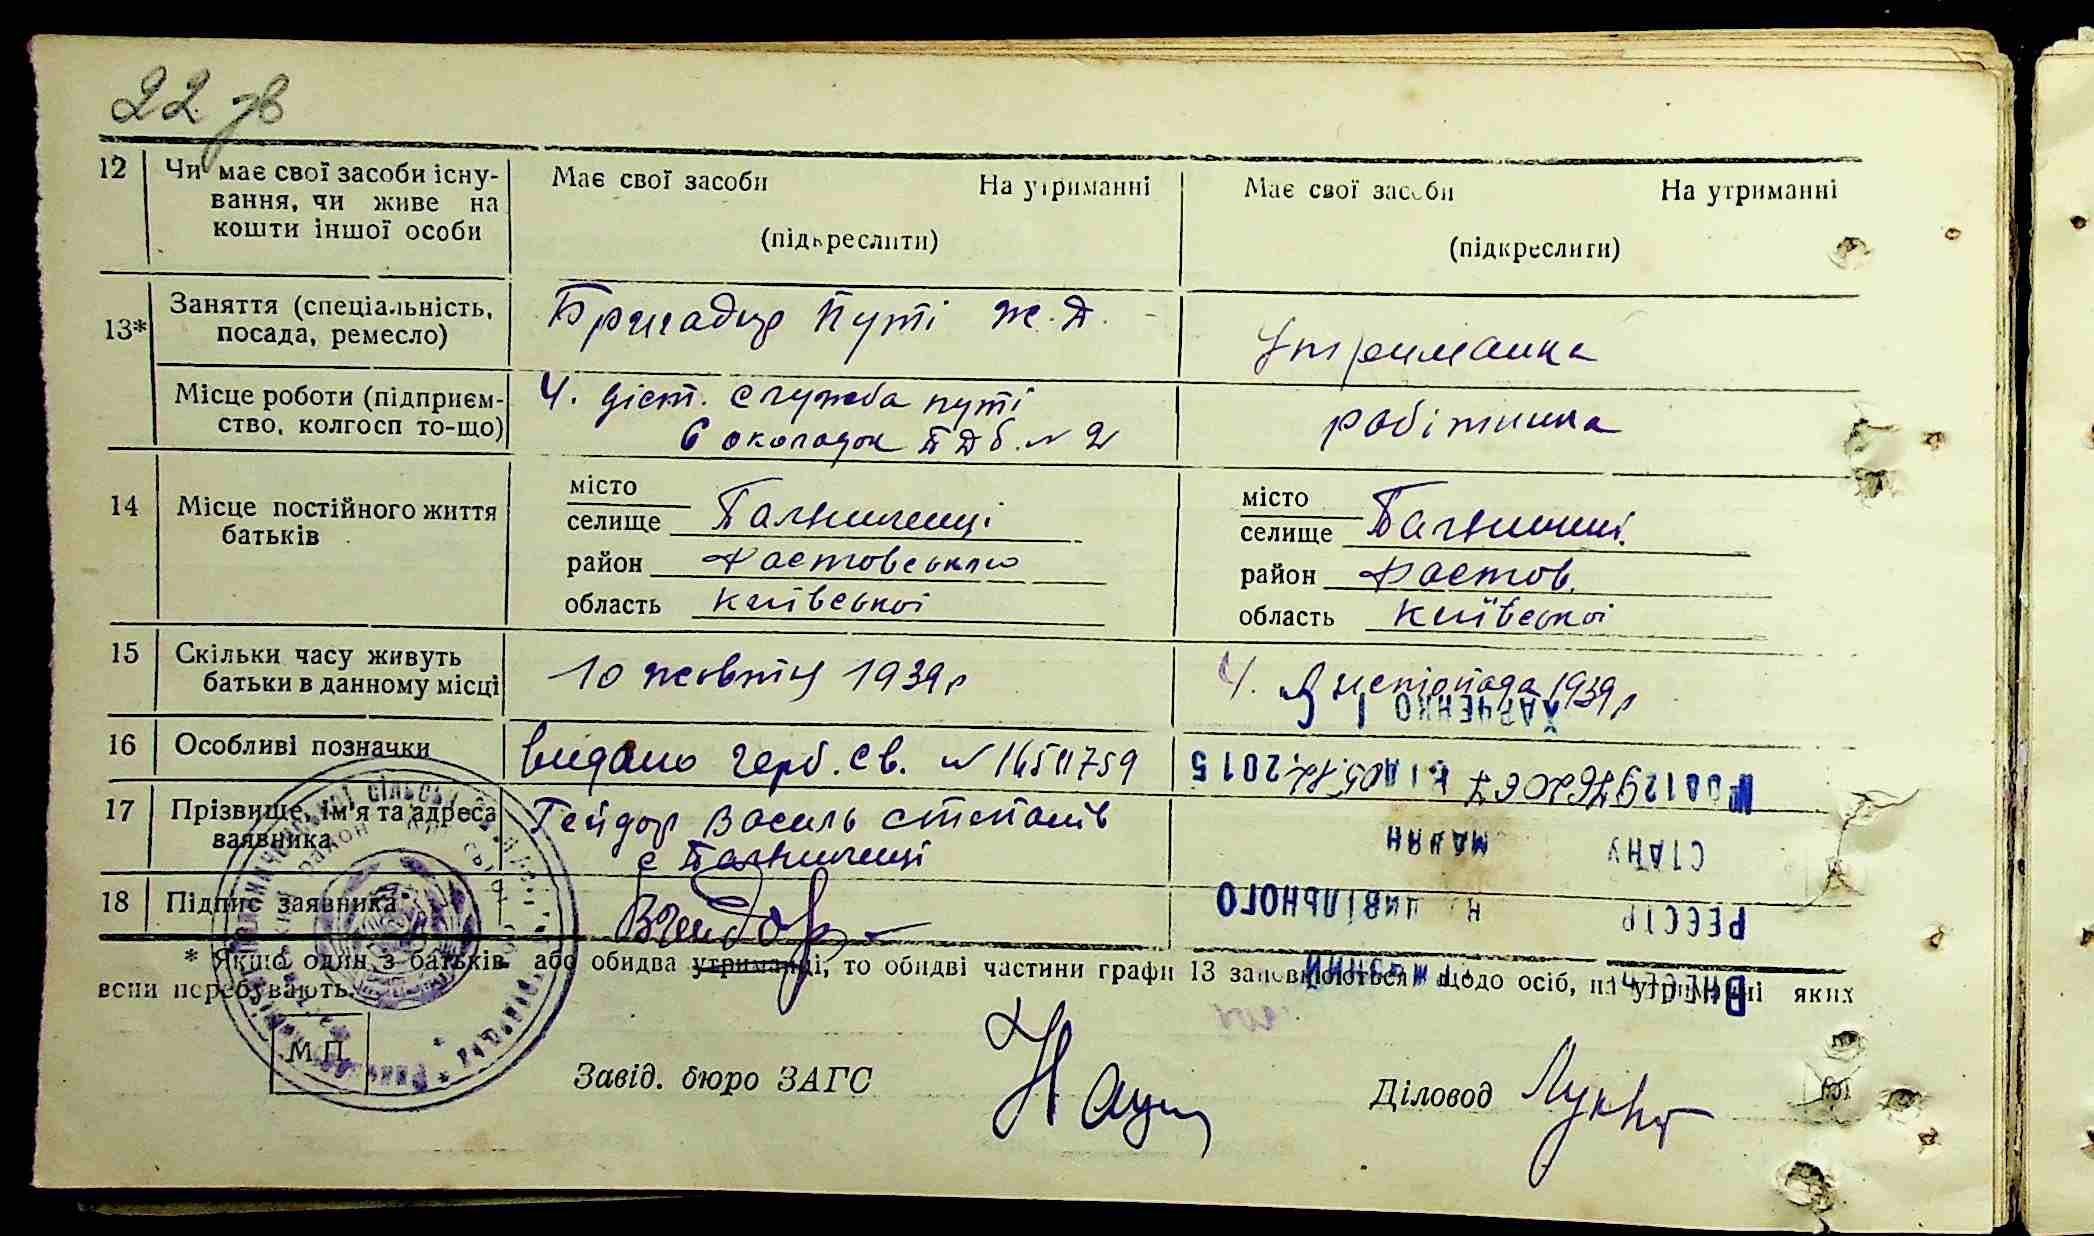 22 зв
12 Чи має свої засоби існу-
вання, чи живе на
кошти іншої особи
Має свої засоби На утриманні
(підкреслити)
Має свої засоби На утриманні
(підкреслити)
13* Заняття (спеціальність,
посада, ремесло)
Бригадир путі ж.д.
Утриманка
Місце роботи (підприєм-
ство, колгосп то-що)
Ч. дист. служба путі
6 околодок ПДб. N 2
робітника
14 Місце постійного життя
батьків
місто
селище Палничинці
район Фастовського
область Київської
місто
селище
район Фастов.
область Київської
15 Скільки часу живуть
батьки в данному місці
10 жовтня 1939 р
Ч. листопада 1939 р
ХАРЧЕНКО
16 Особливі позначки
видано герб. св. N
2015
17 Прізвище, ім'я та адреса
заявника
Гейдор Василь
с
СТАНУ
18 Підпис заявника
ЦИВІЛЬНОГО
РЕЄСТР
* Якщо один з батьків або обидва утриманці, то обидві частини графи 13 заповнюються щодо осіб, на утриманні яких
вони перебувають.
М.П.
Завід. бюро ЗАГС
Діловод